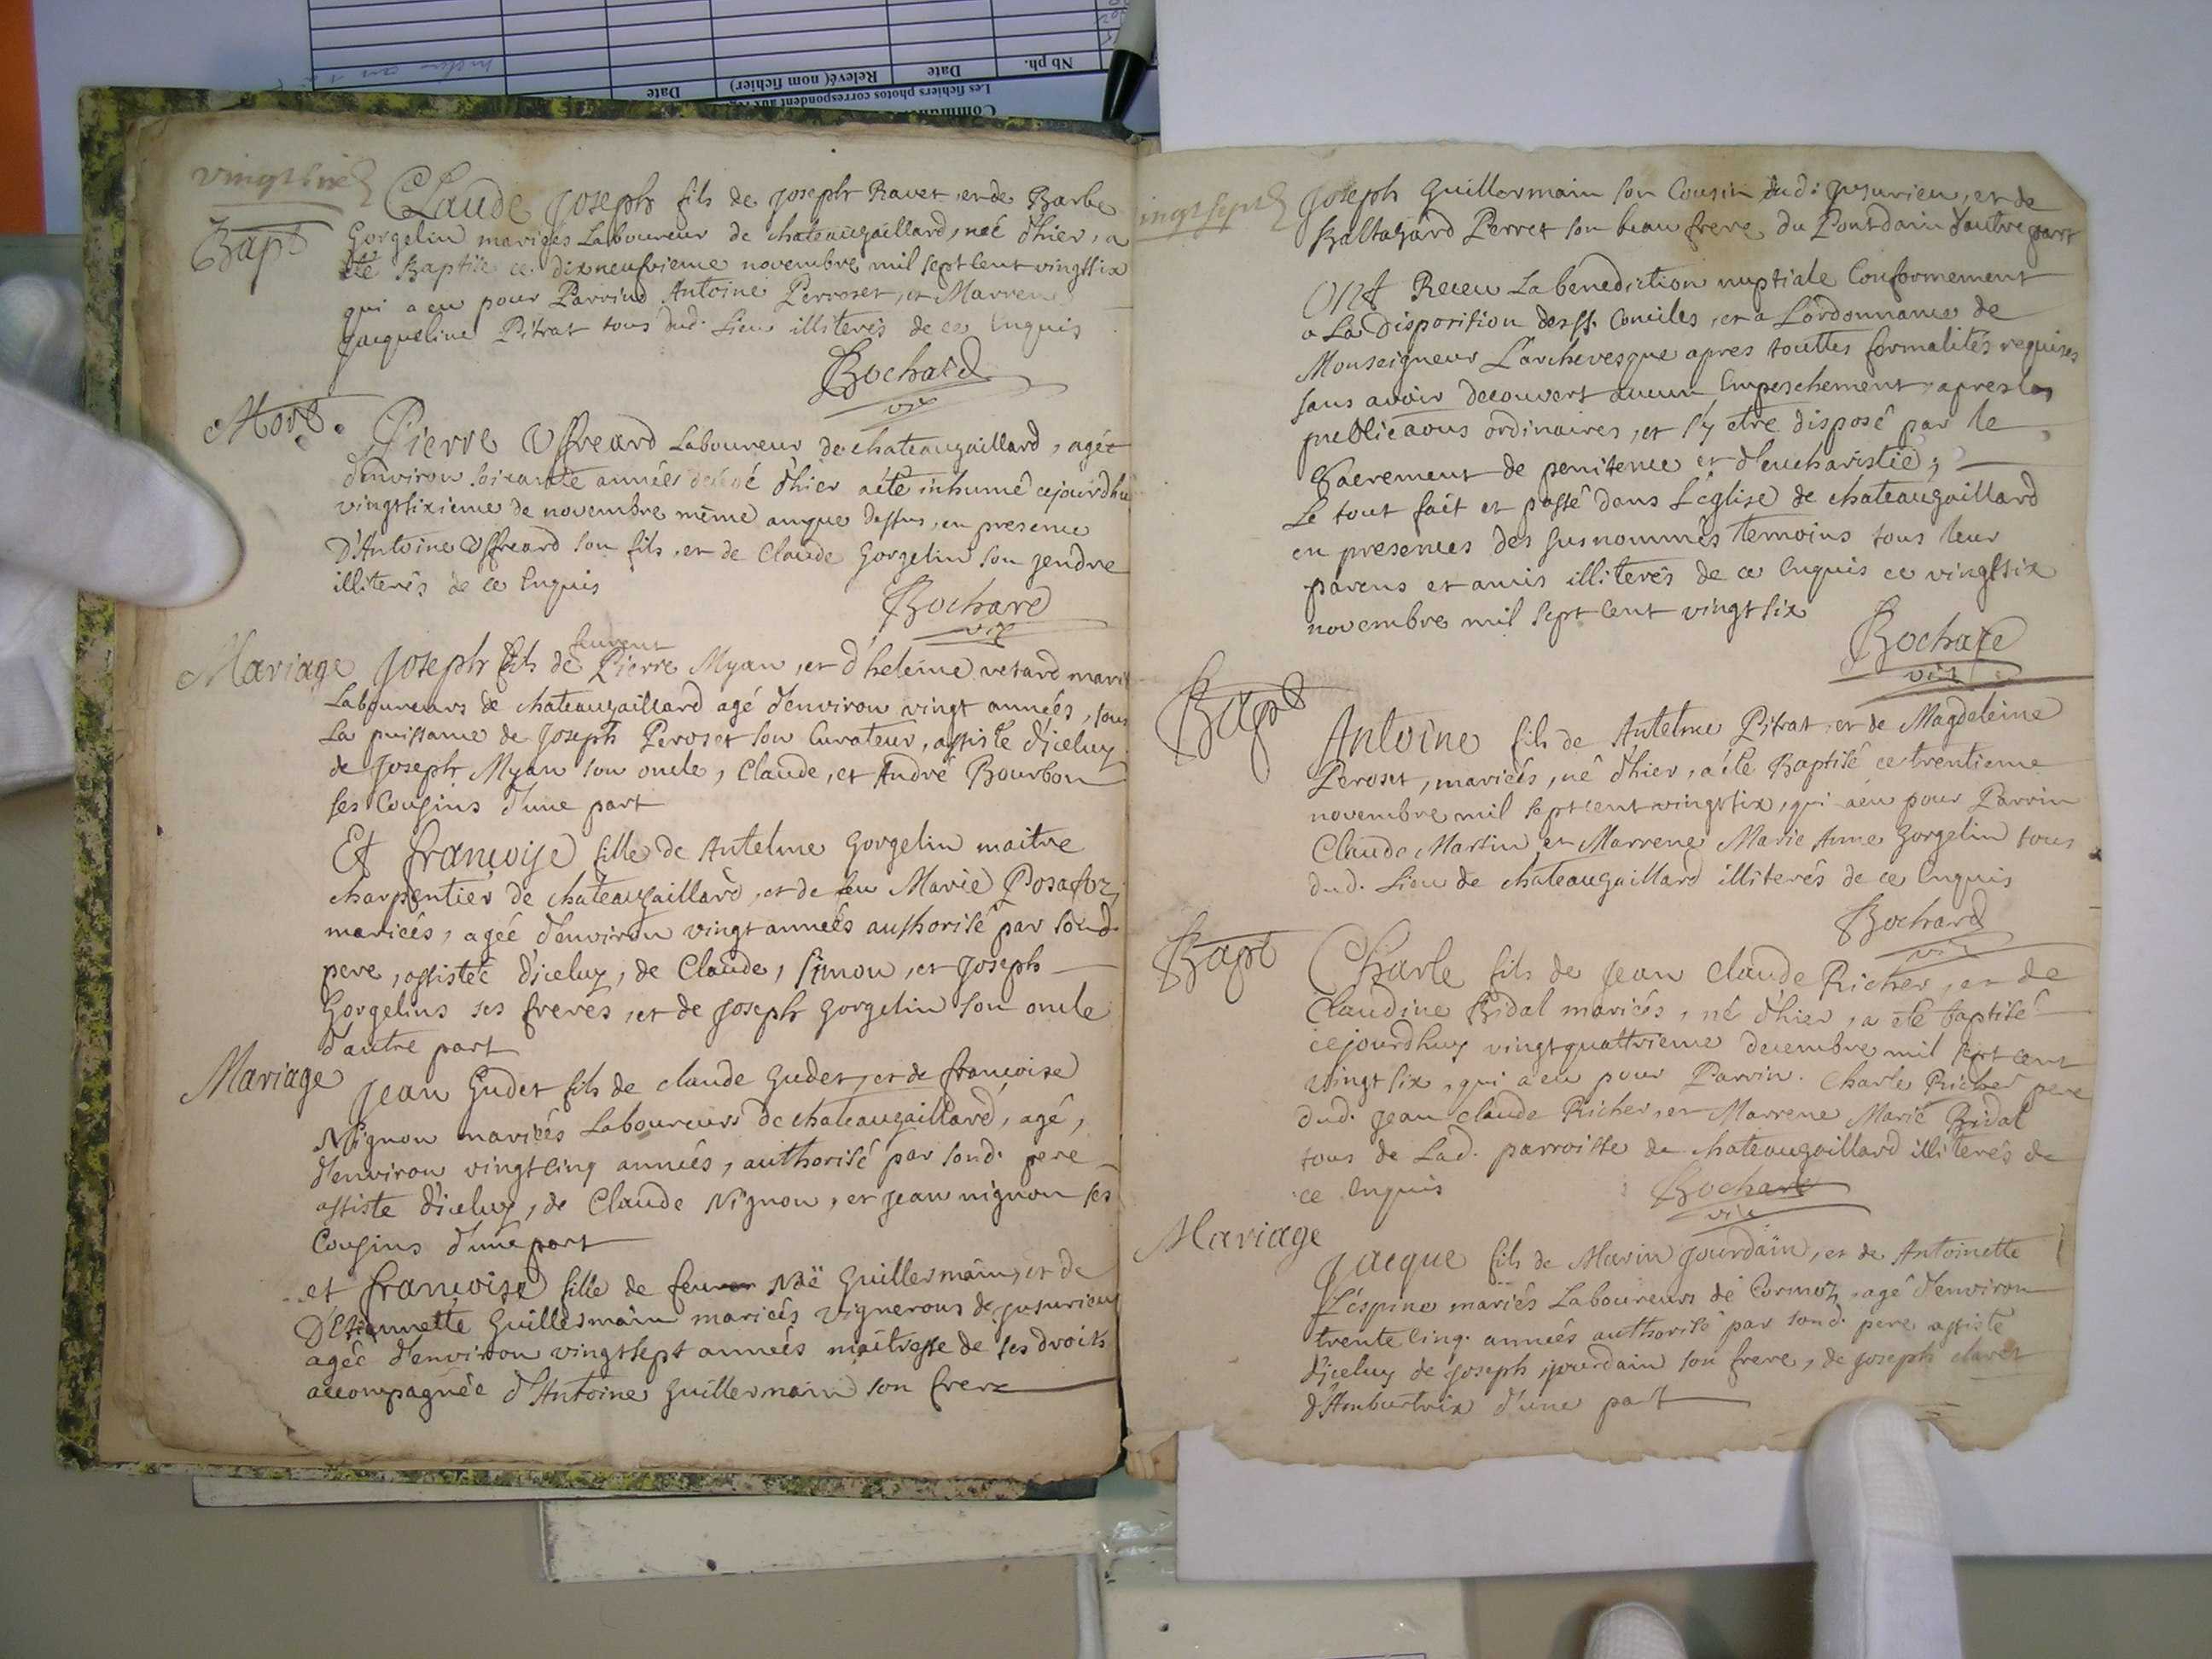 Nb ph.
Date
Relevé( nom fichier)
Date
Les fichiers photos correspondent aux
vingt six
Bapt
Claude Joseph fils de Joseph Ravet, et de Barbe
Gorgelin mariées Laboureur de chateaugaillard, née d'hier, a
été Baptise ce dixneufvieme novembre mil sept cent vingt six
qui a eu pour Parrind Antoine Perroset, et Marrene
Jacqueline Pitrat tous dud. Lieu illiterés de ce Enquis
Bochard
vix
Mort.
Pierre Offreard Laboureur de chateaugaillard, agée
d'environ soixante années décédé d'hier a été inhumé cejourdhui
vingt sixieme de novembre même anque dessus, en presence
D'Antoine Offreard son fils, et de Claude Gorgelin son gendre
illiterés de ce Enquis
Bochard
vix
Mariage
Joseph fils de feurent Pierre Myan, et d'heleine retard marié
Laboureurs de chateaugaillard agé d'environ vingt années, sous
La puissance de Joseph Peroset son Curateur, assiste d'iceluy
de Joseph Myan son oncle, Claude, et André Bourbon
ses Cousins d'une part
Et francoise fille de Antelme Gorgelin maitre
charpentier de chateaugaillard, et de feu Marie Posafoz
mariées, agée d'environ vingt années authorisé par sond.
pere, assistée d'iceluy, de Claude, Simon, et Joseph
Gorgelins ses freres, et de Joseph Gorgelin son oncle
d'autre part
Mariage
Jean Gudet fils de claude Gudet, et de francoise
Nignon mariées Laboureurs de chateaugaillard, agé,
d'environ vingt cinq années, authorisé par sond. pere
assiste d'iceluy, de Claude Nignon, et Jean nignon ses
Cousins d'une part
et francoise fille de feu Noë Guillermain, et de
D'Etiennette Guillermain mariées vignerons de Jusurieu
agée d'environ vingt sept années maitresse de ses droits
accompagnée d'Antoine Guillermain son frere
ingt sept
Joseph Guillermain son Cousin dud. Jusurieu, et de
Baltazard Perret son beau frere du Pontdain d'autre part
Ont Receu La bénédiction nuptiale Conformement
a La Disposition des SS. Conciles, et a L'ordonnance de
Monseigneur L'archevesque apres touttes formalités requises
sans avoir decouvert aucun Empeschement, apres les
publicaons ordinaires, et s'y etre disposé par le
Sacrement de penitence et d'eucharistie;
Le tout fait et passé dans L'eglise de chateaugaillard
en presences des susnommés temoins tous leur
parens et amis illiterés de ce Enquis ce vingt six
novembre mil sept cent vingt six
Bochard
vix
Bapt
Antoine fils de Antelme Pitrat et de Magdeleine
Peroset, mariées, né d'hier, a été Baptisé ce trentieme
novembre mil sept cent vingt six, qui a eu pour Parrin
Claude Martin et Marrene Marie Anne Gorgelin tous
dud. Lieu de chateaugaillard illiterés de ce Enquis
Bochard
vix
Bapt
Charle fils de Jean Claude Richer, et de
Claudine Bidal mariées, né d'hier, a été baptisé
cejourdhuy vingt quattrieme decembre mil sept cent
vingt six, qui a eu pour Parrin. Charle Richer pere
dud. Jean Claude Richer, et Marrene Marie Bidal
tous de Lad. parroisse de chateaugaillard illiterés de
ce Enquis
Bochard
vix
Mariage
Jacque fils de Marin Jourdain, et de Antoinette
L'éspine mariés Laboureurs de Cormoz, agé d'environ
trente cinq. années authorisé par sond. pere assisté
d'iceluy de Joseph jourdain son frere, de Joseph claret
d'Amburtrix d'une part